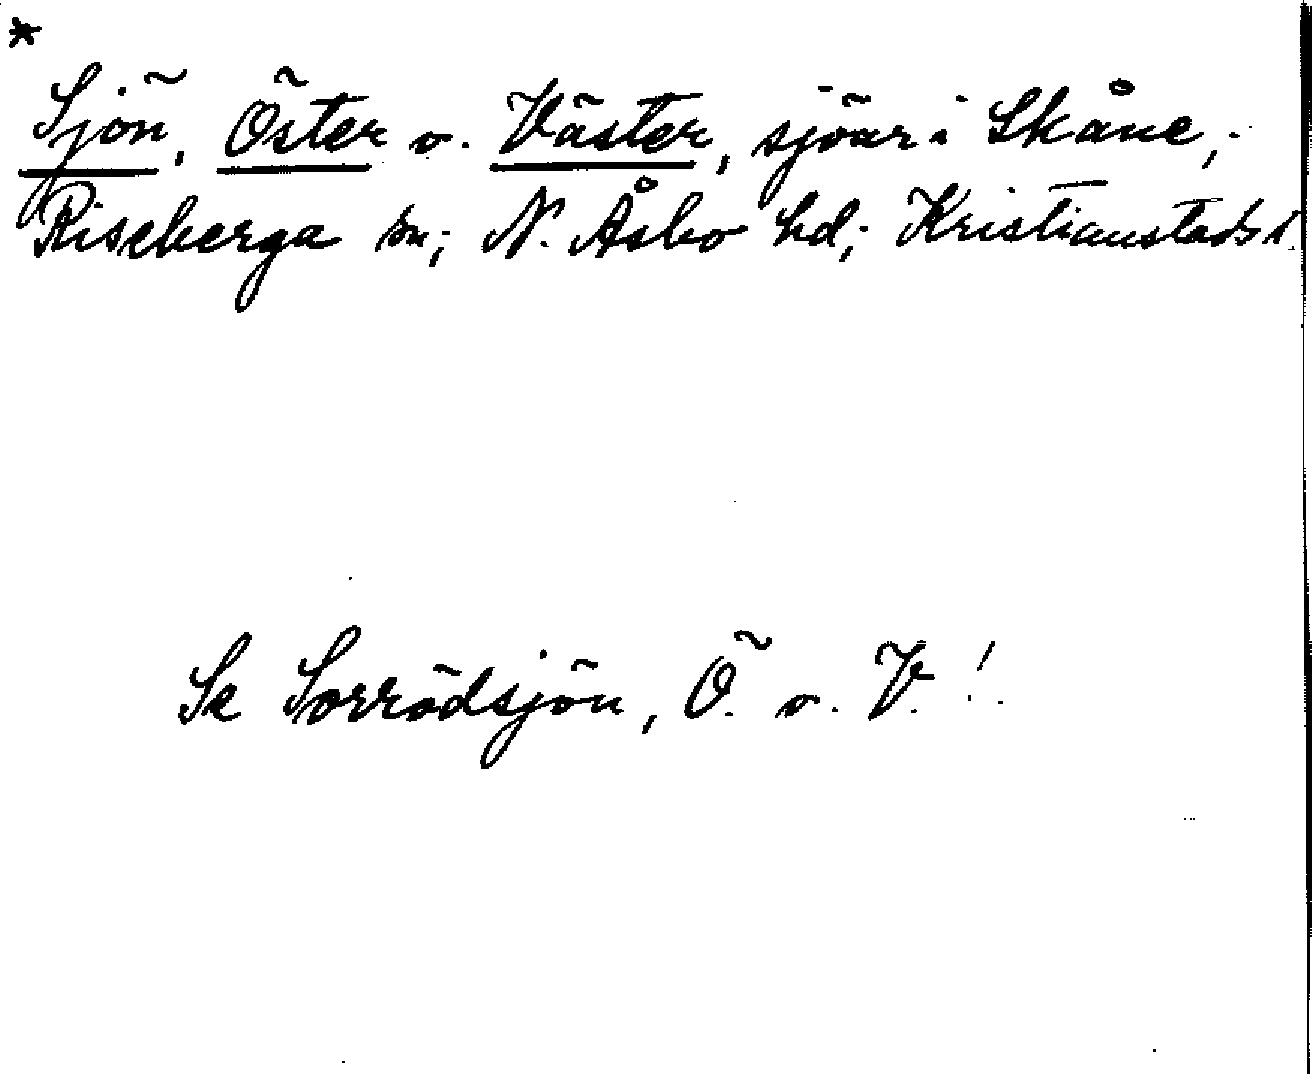 *
Sjön, Öster o. Väster, sjöar i Skåne,
Riseberga sn; N. Åsbo hd; Kristianstads l.
Se Sorrödsjön, Ö. o. V.!